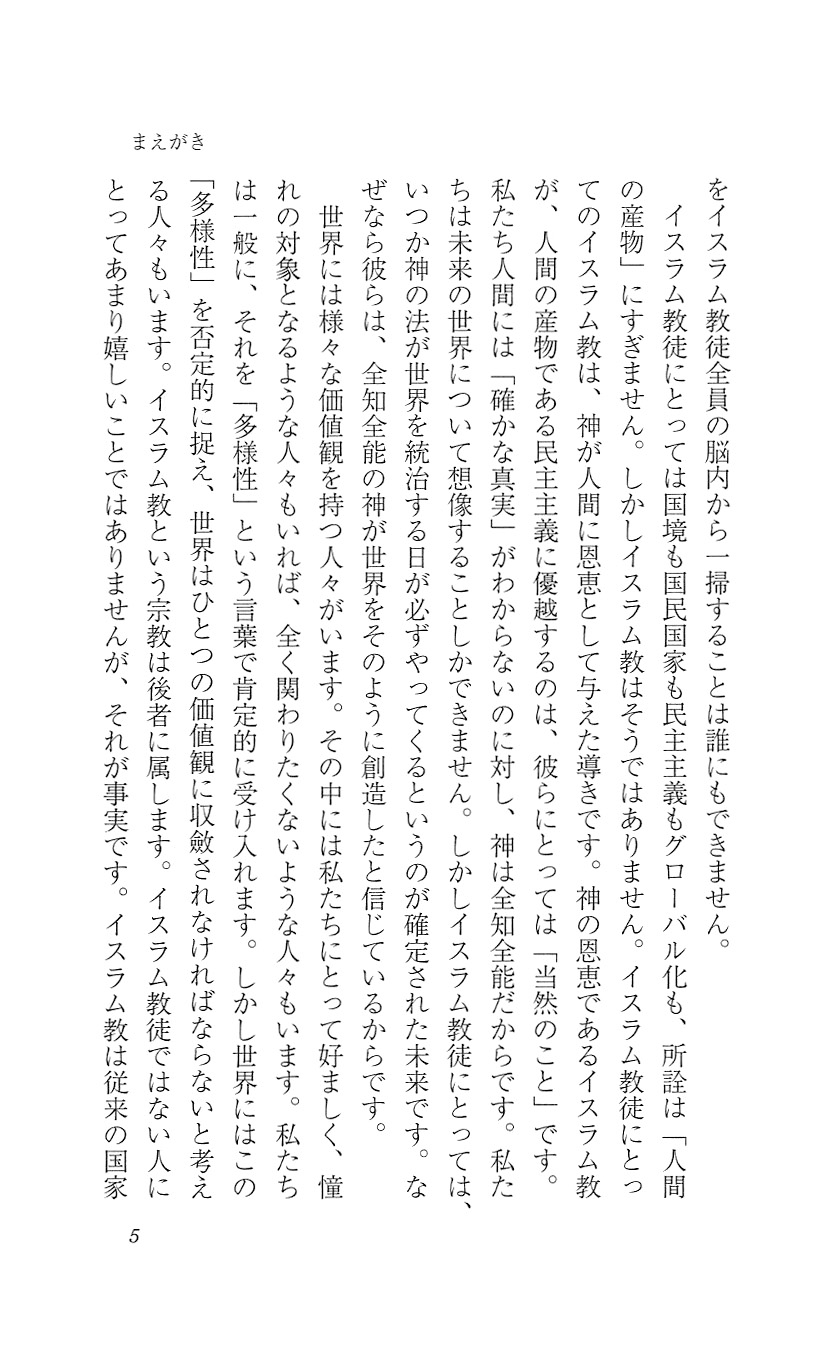 まえがき
をイスラム教徒全員の脳内から一掃することは誰にもできません。
　イスラム教徒にとっては国境も国民国家も民主主義もグローバル化も、所詮は「人間
の産物」にすぎません。しかしイスラム教はそうではありません。イスラム教徒にとっ
てのイスラム教は、神が人間に恩恵として与えた導きです。神の恩恵であるイスラム教
が、人間の産物である民主主義に優越するのは、彼らにとっては「当然のこと」です。
私たち人間には「確かな真実」がわからないのに対し、神は全知全能だからです。私た
ちは未来の世界について想像することしかできません。しかしイスラム教徒にとっては、
いつか神の法が世界を統治する日が必ずやってくるというのが確定された未来です。な
ぜなら彼らは、全知全能の神が世界をそのように創造したと信じているからです。
　世界には様々な価値観を持つ人々がいます。その中には私たちにとって好ましく、憧
れの対象となるような人々もいれば、全く関わりたくないような人々もいます。私たち
は一般に、それを「多様性」という言葉で肯定的に受け入れます。しかし世界にはこの
「多様性」を否定的に捉え、世界はひとつの価値観に収斂されなければならないと考え
る人々もいます。イスラム教という宗教は後者に属します。イスラム教徒ではない人に
とってあまり嬉しいことではありませんが、それが事実です。イスラム教は従来の国家
5